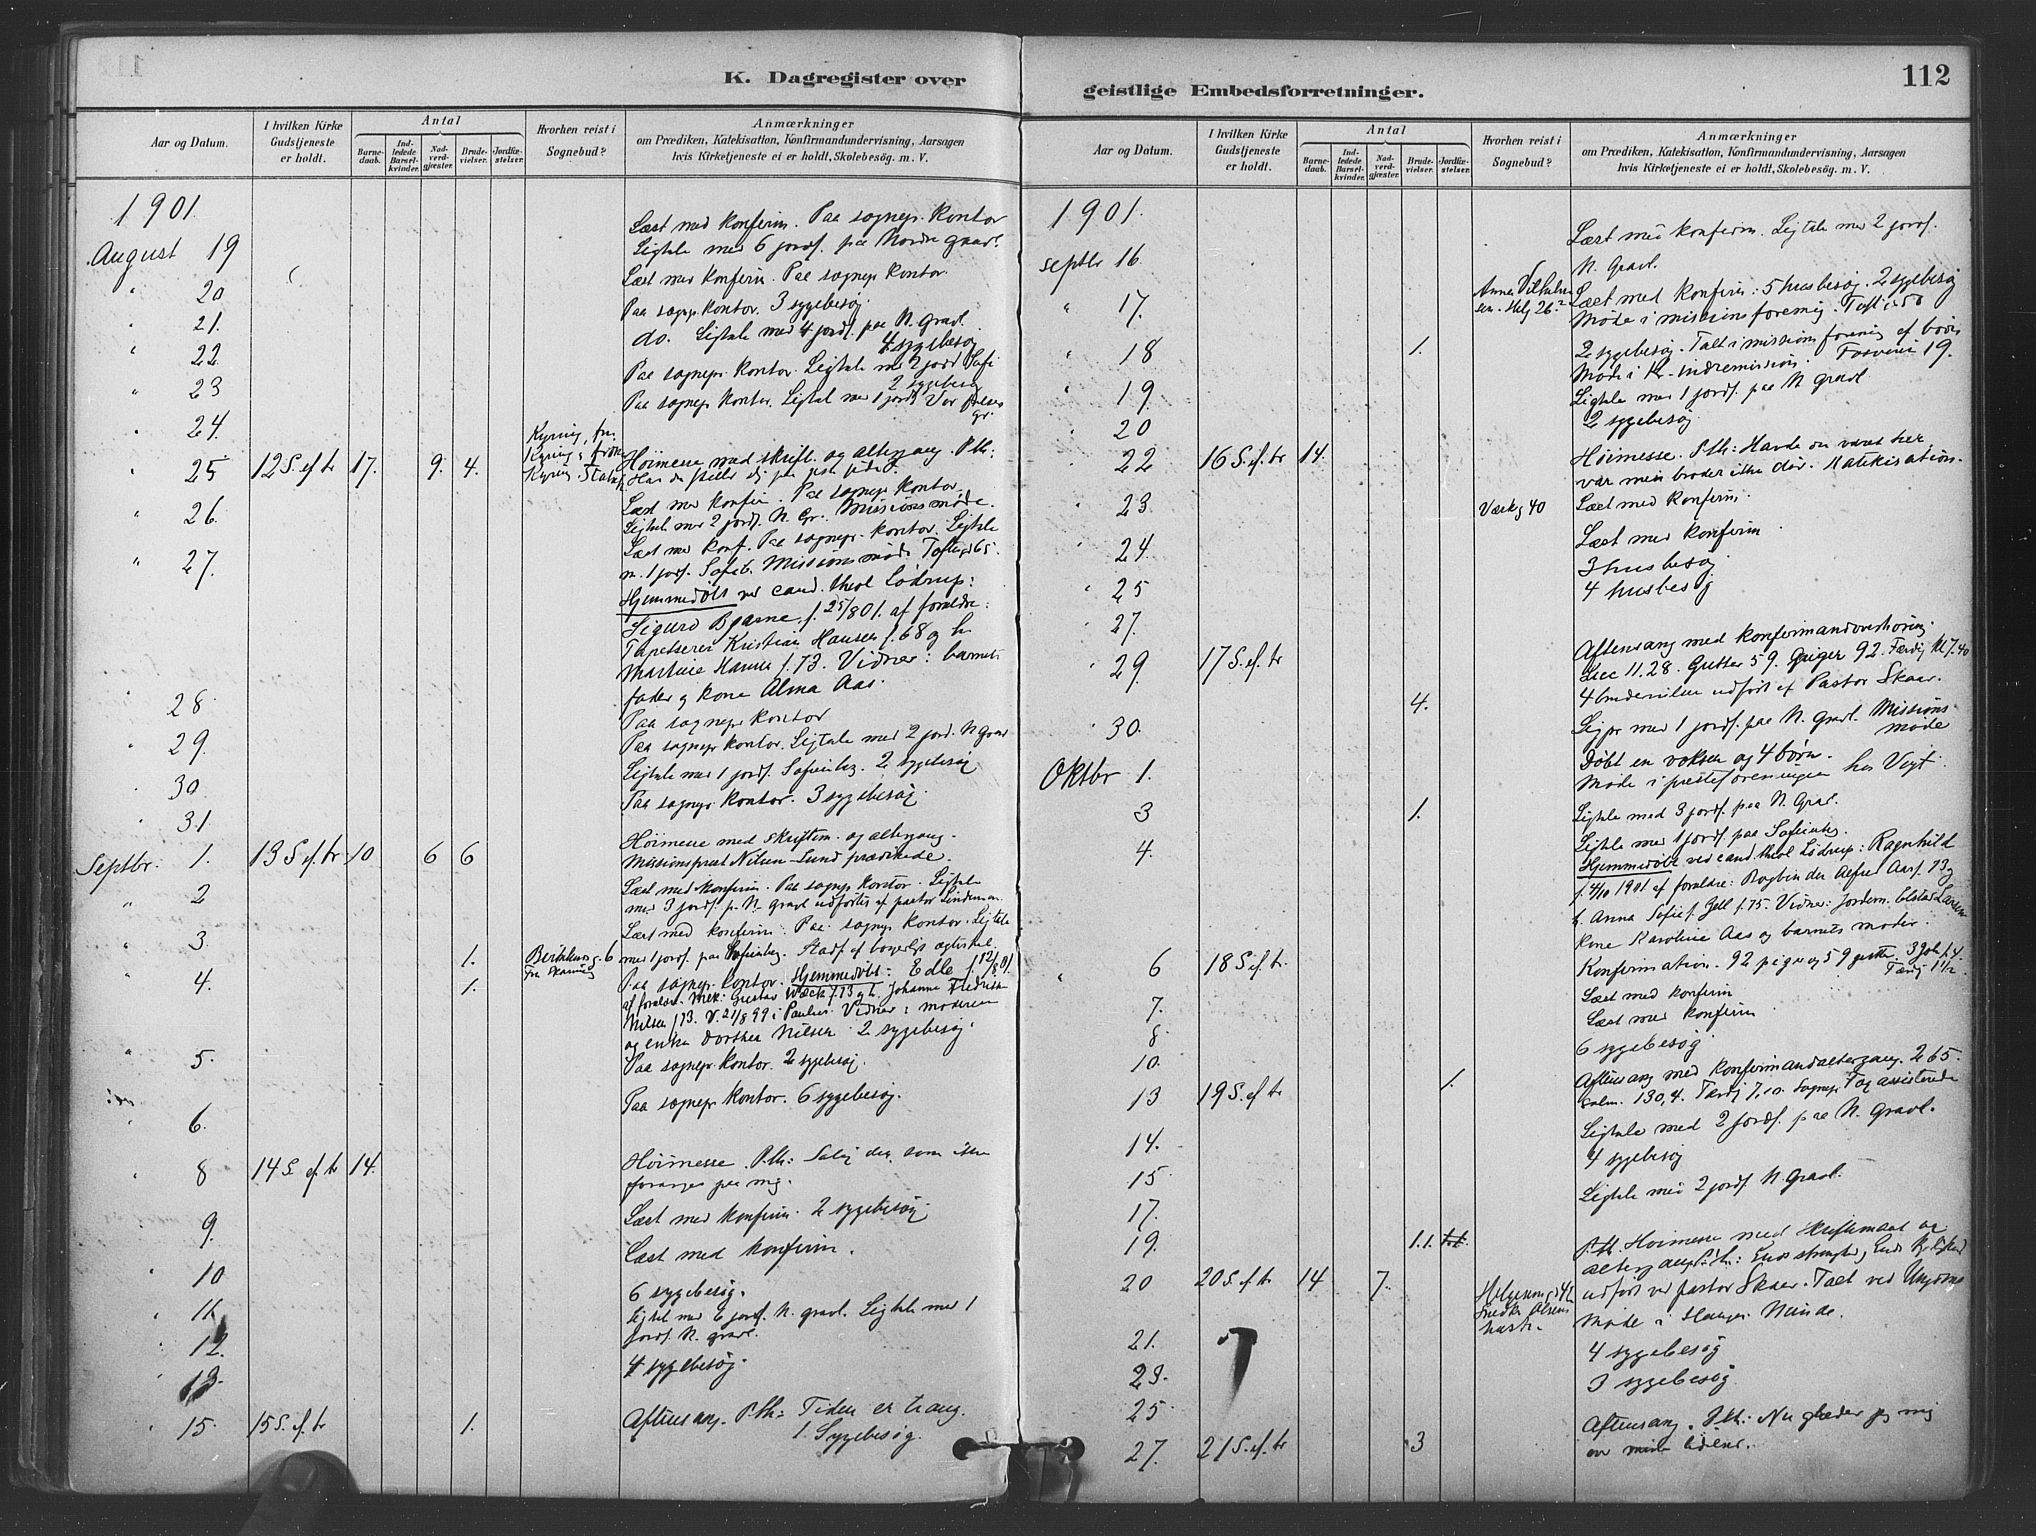 K. Dagregister over
Aar og Datum.
I hvilken Kirke Gudstjeneste er holdt.
Antal
Barnedaab.
Indledede Barselkvinder.
Nadverdgjæster.
Brudevielser.
Jordfæstelser.
Hvorhen reist i Sognebud?
Anmærkninger
om Prædiken, Katekisation, Konfirmandundervisning, Aarsagen
hvis Kirketjeneste ei er holdt, Skolebesög. m. V.
1901
Læst med konfirm. Paa sognepr. kontor
August 19
Ligtale med 6 jordf. paa Nordre gravl.
" 20
Læst med konfirm. Paa sognepr kontor.
" 21.
Paa sognepr. kontor. 3 sygebesøg.
" 22.
do. Ligtale med 4 jordf. paa N. gravl.
4 sygebesøg
" 23
Paa sognepr. kontor. Ligtale med 2 jord Sofi
2 sygebesøg
" 24.
Paa sognepr kontor. Ligtale med 1 jordf. Vor frelsers
gr.
" 25 12 S. ef. tr 17. 9. 4.
Høimesse med skrift. og altergang. P.th:
" 26.
Læst med konfir. Paa sognepr kontor.
Ligtale med 2 jordf. N. Gr. Missionsmøde.
" 27.
Læst med konf. Paa sognepr. kontor. Ligtale
m. 1 jordf. Sofieb. Missionsmøde Toftegd 65.
Hjemmedøbt ved cand. theol Lødrup:
Sigurd Bjarne f. 25/8 01. af forældre:
Tapetserer Kristian Hansen f. 68 og h.
Martinie Hansen f. 73. Vidner: barnets
fader og kone Alma Aas.
" 28
Paa sognepr kontor
" 29.
Paa sognepr kontor. Ligtale med 2 jord. N grav
" 30
Ligtale med 1 jordf. Sofienbg. 2 sygebesøg
" 31
Paa sognepr kontor. 3 sygebesøg.
Septbr. 1. 13 S ef. tr 10 6 6
Høimesse med skriftem. og altergang.
Missionsprest Nilsen-Lund prædikede.
" 2
Læst med konfirm. Paa sognepr kontor. Ligtale
med 3 jordf. p. N. gravl udførtes af pastor Lindeman.
" 3. 1.
Læst med konfirm. Paa sognepr kontor. Ligtale
med 1 jordf. paa Sofienbg. Stadf. af borgerligt ægteskab.
" 4. 1.
Paa sognepr. kontor. Hjemmedøbt: Edle f. 12/8 01.
af forældre. Mek: Gustav Wæck f. 73 og h. Johanne Fredrikke
Nilsen f 73. V. 21/8 99 i Paulus. Vidner: moderen
og enke Dorthea Nilsen. 2 sygebesøg.
" 5.
Paa sognepr. kontor. 2 sygebesøg.
" 6.
Paa sognepr kontor. 6 sygebesøg.
" 8 14 S. ef tr 14.
Høimesse. P.th: Salig den som ikke
forarges paa mig.
9.
Læst med konfirm. 2 sygebesøg.
" 10
Læst med konfirm.
" 11.
6 sygebesøg.
" 12.
Ligtale med 6 jordf. N. gravl. Ligtale med 1
jordf. N. gravl.
" 13.
4 sygebesøg.
" 15. 15 S. ef. tr 1.
Aftensang. P.th: Tiden er trang.
1 Sygebesøg.
geistlige Embedsforretninger.
112
Aar og Datum.
I hvilken Kirke Gudstjeneste er holdt.
Antal
Barnedaab.
Indledede Barselkvinder.
Nadverdgjæster.
Brudevielser.
Jordfæstelser.
Hvorhen reist i Sognebud?
Anmærkninger
om Prædiken, Katekisation, Konfirmandundervisning, Aarsagen
hvis Kirketjeneste ei er holdt, Skolebesög. m. V.
1901.
Septbr 16.
Læst med konfirm. Ligtale med 2 jordf.
N. Gravl.
" 17.
Læst med konfirm: 5 husbesøg. 2 sygebesøg
Møde i missionsforening. Toftegd 50
" 18 1.
2 sygebesøg. Talt i missionsforening af børn
Møde i Kr. indremission. Fosveien 19.
" 19.
Ligtale med 1 jordf. paa N gravl
20
2 sygebesøg
22 16 S. ef tr 14.
Høimesse. P.th: Havde du været her
var min broder ikke død. Katekisation.
23 Værksg 40
Læst med konfirm.
24.
Læst med konfirm
25
3 husbesøg
27.
4 husbesøg
29. 17 S. ef. tr 4.
Aftensang med konfirmandoverhøring.
Luc 11.28. Gutter 59. Piger 92. Færdig kl 7.40
4 brudevielser udført af Pastor Skaar.
30.
Ligpr med 1 jordf. paa N. gravl. Missionsmøde
Oktbr 1.
Døbt en voksen og 4 børn.
Møde i presteforeningen hos Vogt.
3 1.
Ligtale med 3 jordf. paa N. Gravl.
4.
Ligtale med 1 jordf. paa Sofienbg.
Hjemmedøbt ved cand theol Lødrup: Ragnhild
f. 4/10 1901 af forældre: Bogbinder Alfred Aas f. 73 og
h. Anna Sofie f. Gell f. 75. Vidner: Jordem.
kone Karoline Aas og barnets moder.
" 6 18 S. ef. tr.
Konfirmation. 92 piger og 59 gutter.
Færdig 1 1/2.
7.
Læst med konfirm
8
Læst med konfirm
10.
6 sygebesøg.
13 19 S. ef tr 1.
Aftensang med konfirmandaltergang. 265.
Salm. 130,4. Færdig 7,10. Sognepr. Fog assisterede
14.
Ligtale med 2 jordf. paa N. gravl.
15
4 sygebesøg
17.
Ligtale med 2 jordf. N. gravl.
19. 1.1.
20 20 S. ef tr 14 7.
Høimesse med skriftemaal og
altergang.
udført ved pastor Skaar. Talt ved Ungdoms
Møde i Hauges Minde.
21.
4 sygebesøg
23.
3 sygebesøg
25
27. 21 S. ef. tr 3
Aftensang. P.th: Nu glæder jeg mig
over mine lidelser.